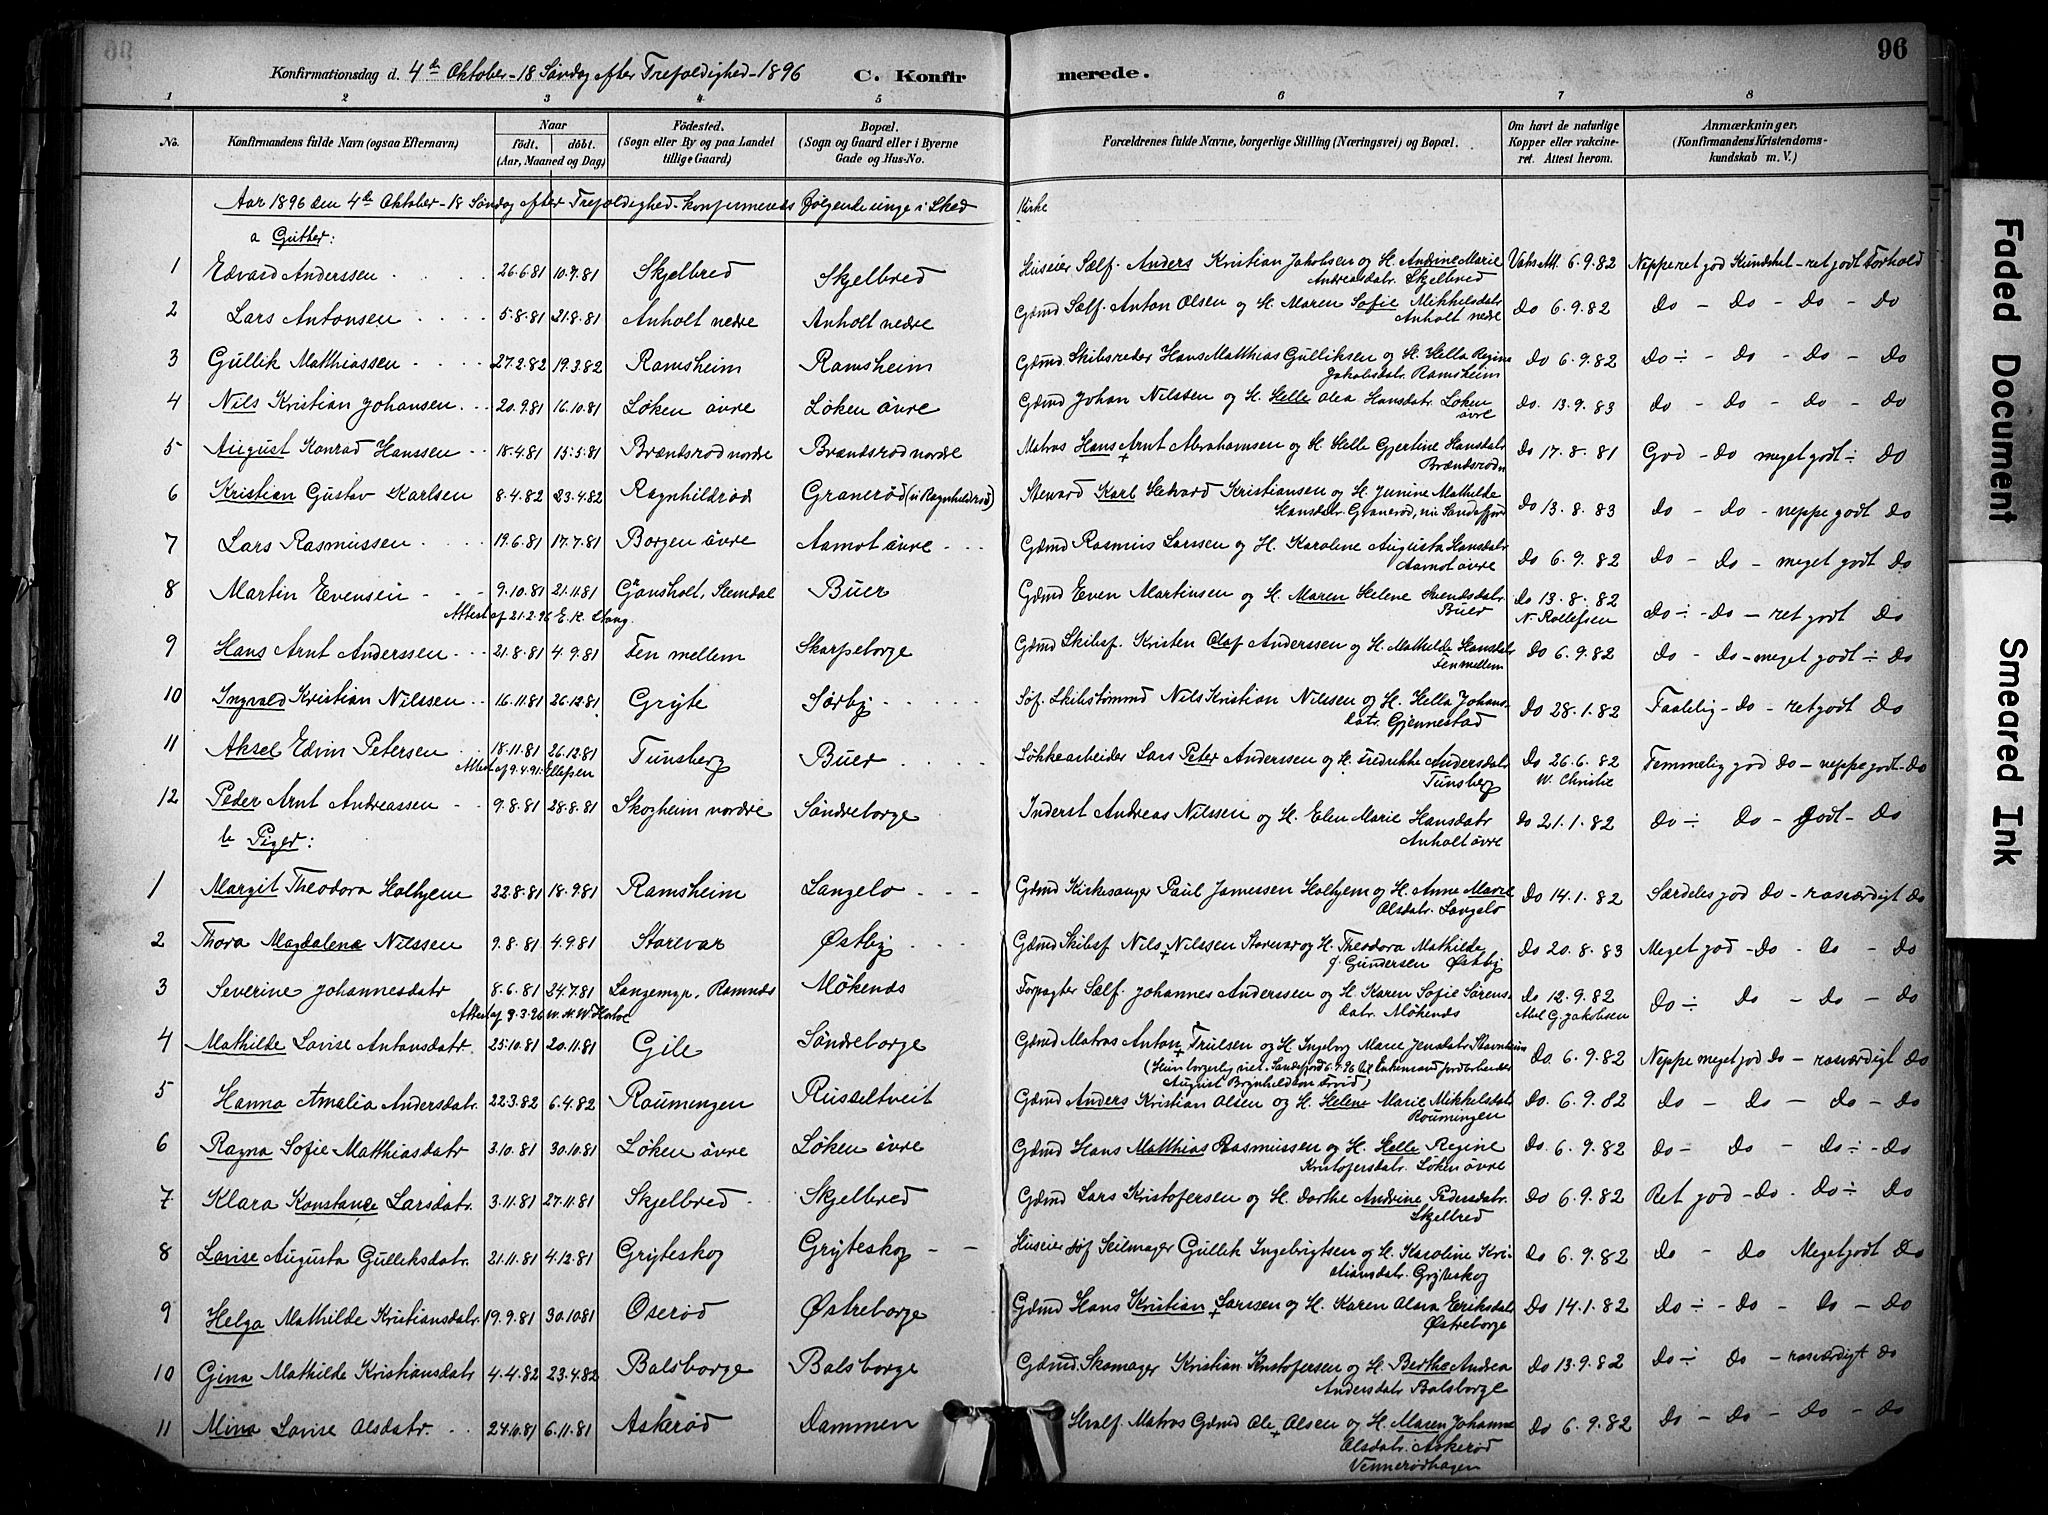 96
Konfirmationsdag d. 4de Oktober - 18 Søndag efter Trefoldighed - 1896 C. Konfirmerede.
1 2 3 4 5 6 7 8
No. Konfirmandens fulde Navn (ogsaa Efternavn) Naar født. døbt. (Aar, Maaned og Dag) Fødested. (Sogn eller By og paa Landet tillige Gaard) Bopæl. (Sogn og Gaard eller i Byerne Gade og Hus-No. Forældrenes fulde Navne, borgerlige Stilling (Næringsvei) og Bopæl. Om havt de naturlige Kopper eller vakcineret. Attest herom. Anmærkninger. (Konfirmandens Kristendomskundskab m. V.)
Aar 1896 den 4de Oktober - 18 Søndag efter Trefoldighed - konfirmeredes følgende unge i Skee Kirke
a Gutter:
1 Edvard Anderssen 26.6.81 10.7.81 Skjelbred Skjelbred Huseier Sælf. Anders Kristian Jakobsen og H. Andrine Marie Andreasdatr. Skjelbred 6.9.82 Neppe ret god Kundskab - ret godt Forhold
2 Lars Antonsen 5.8.81 21.8.81 Anholt nedre Anholt nedre Gdmd Sælf. Anton Olsen og H. Maren Sofie Mikkelsdatr Anholt nedre Do 6.9.82 Do - Do - Do - Do
3 Gullik Matthiassen 27.2.82 19.3.82 Ramsheim Ramsheim Gdmd. Skibsreder Hans Matthias Gulliksen og H. Hella Regine Jakobsdatr. Ramsheim Do 6.9.82 Do ÷ - Do - Do - Do
4 Nils Kristian Johansen 20.9.81 16.10.81 Løken øvre Løken øvre Gdmd Johan Nilssen og H. Helle Olea Hansdatr. Løken øvre Do. 13.9.83 Do - Do - Do - Do
5 August Konrad Hanssen 18.4.81 15.5.81 Brændsrød nordre Brændsrød nordre Matros Hans + Arnt Abrahamsen og H. Helle Gjertine Hansdatr Brændsrødn Do 17.8.81 God - Do meget godt ÷ Do
6 Kristian Gustav Karlsen 8.4.82 23.4.82 Ragnhildrød Granerød (u. Ragnhildsrød) Steward Karl Edvard Kristiansen og H. Jenine Mathilde Hansdatr. Granerød, nu Sandefjord Do 13.8.83 Do - Do - neppe godt Do
7 Lars Rasmussen 19.6.81 17.7.81 Borgen øvre Aamot øvre Gdmd Rasmus Larssen og H. Karoline Augusta Hansdatr Aamot øvre Do 6.9.82 Do - Do - meget godt Do
8 Martin Evensen 9.10.81 21.11.81 Gånsholt, Slemdal Buer Gdmd Even Martinsen og H. Maren Helene Svendsdatr. Buer Do 13.8.82 N. Rollefsen Do ÷ - Do - ret godt Do
Attest af 21.2.96 E. K.
9 Hans Arnt Anderssen 21.8.81 4.9.81 Fen mellem Skorpeborge Gdmd Skibsf. Kristen Olaf Anderssen og H. Mathilde Hansdatr Fen mellem Do 6.9.82 Do - Do - meget godt ÷ Do
10 Ingvald Kristian Nilssen 16.11.81 26.12.81 Gryte Sørby Søf. Skibstømmd Nils Kristian Nilssen og H. Hella Johansdatr. Gjennestad Do 28.1.82 Taalelig - Do - ret godt Do
11 Aksel Edvin Petersen 18.11.81 26.12.81 Tunsberg Buer Løkkearbeider Lars Peter Anderssen og H. Fredrikke Andersdatr Tunsberg Do 26.6.82 W. Christie Temmelig god Do - neppe godt - Do
Attest af 9.4.91: Ellefsen
12 Peder Arnt Andreassen 9.8.81 28.8.81 Skogheim nordre Søndreborge Inderst Andreas Nilssen og H. Elen Marie Hansdatr Anholt øvre Do 21.1.82 Do ÷ Do - Godt - Do
b Piger:
1 Margit Theodora Holhjem 22.8.81 18.9.81 Ramsheim Langelo Gdmd Kirkesanger Paul Jamessen Holhjem og H. Anne Marie Olsdatr. Langelo Do 14.1.82 Særdeles god Do - rosværdigt Do
2 Thora Magdalena Nilssen 9.8.81 4.9.81 Storevar Østby Gdmd Skibsf Nils + Nilssen Storevar og H. Theodora Mathilde f. Gundersen Østby Do 20.8.83 Meget god - Do - Do - Do
3 Severine Johannesdatr 8.6.81 24.7.81 Langemyr, Ramnes Møkenes Forpagter Sælf. Johannes Anderssen og H. Karen Sofie Sørensdatr. Møkenes Do 12.9.82 Abel G. Jakobsen Do ÷ Do - Do - Do
Attest af 9.3.96
4 Mathilde Lovise Antonsdatr. 25.10.81 20.11.81 Gile Søndreborge Gdmd Matros Anton + Trulsen og H. Ingeborg Marie Jensdatr Do. 6.9.82 Neppe meget god Do - rosværdigt Do
5 Hanna Amalia Andersdatr 22.3.82 6.4.82 Roumengen Russeltveit Gdmd Anders Kristian Olsen og H. Helene Marie Mikkelsdatr Roumingen Do. 6.9.82 Do - Do - Do - Do
6 Ragna Sofie Matthiasdatr 3.10.81 30.10.81 Løken øvre Løken øvre Gdmd Hans Matthias Rasmussen og H. Helle Regine Kristofersdatr. Løken øvre Do. 6.9.82 Do - Do - Do ÷ - Do
7 Klara Konstance Larsdatr. 3.11.81 27.11.81 Skjelbred Skjelbred Gdmd Lars Kristofersen og H. Dorthe Andrine Pedersdatr. Skjelbred Do 6.9.82 Ret god - Do - Do ÷ Do
8 Lovise Augusta Gulliksdatr. 21.11.81 4.12.81 Gryteskog Gryteskog Huseier søf Seilmager Gullik Ingebrigtsen og H. Karoline Kristiansdatr. Gryteskog Do 6.9.82 Do - Do Meget godt Do
9 Helga Mathilde Kristiansdatr. 19.9.81 30.10.81 Oserød Østreborge Gdmd Hans Kristian + Larssen og H. Karen Alma Eriksdatr Østreborge Do 14.1.82 Do ÷ - Do - Do - Do
10 Gina Mathilde Kristiansdatr 4.4.82 23.4.82 Bolsborge Bolsborge Gdmd. Skomager Kristian Kristofersen og H. Berthe Andrea Andersdatr Bolsborge Do 13.9.82 Do ÷ Do - rosværdigt Do
11 Mina Lovise Olsdatr. 24.10.81 6.11.81 Askerød Dammen Hvalf. Matros Gdmd Ole + Olsen og H. Maren Johanne Olsdatr. Askerød Vennerødhagen Do 6.9.82 Do - Do - Do - Do
Faded Document
Smeared Ink